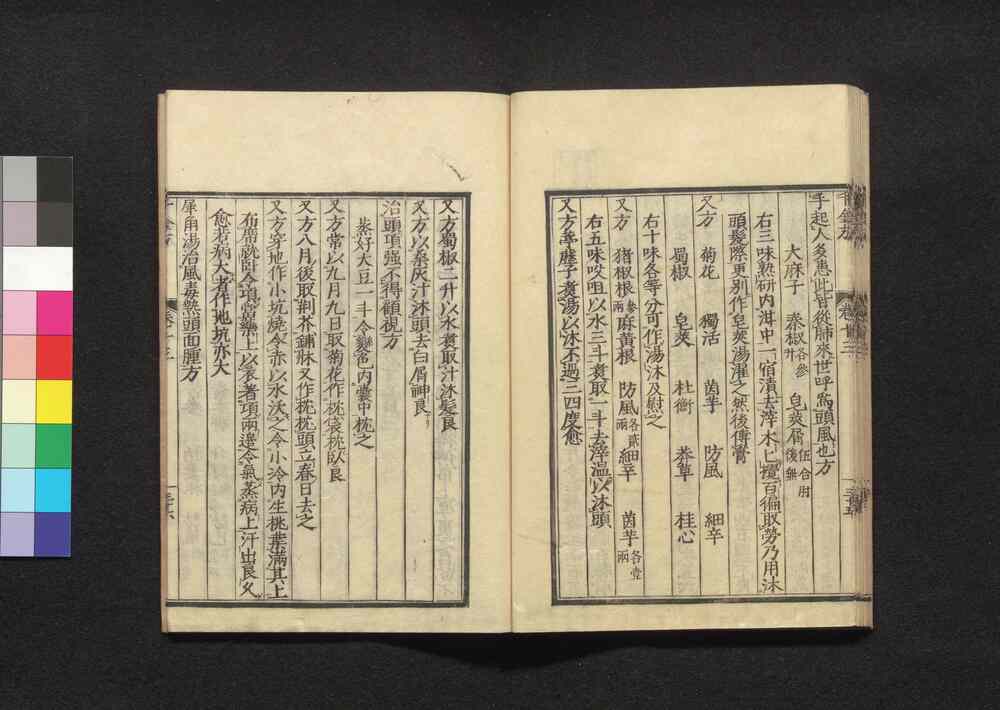 手起人多患此皆從肺來世呼爲頭風也方
大麻子　秦椒各參升　皂莢屑伍合用後無
右三味熟研内泔中一宿漬去滓木匕攪百徧取勞乃用沐
頭髮際更別作皂莢湯濯之然後傅膏
又方　菊花　獨活　茵芋　防風　細辛
蜀椒　皂莢　杜衡　莽草　桂心
右十味各等分可作湯沐及慰之
又方　猪椒根參兩　麻黄根　防風各貳兩　細辛　茵芋各壹兩
右五味㕮咀以水三斗煑取一斗去滓温以沐頭
又方葶藶子煑湯以沐不過三四度愈
又方蜀椒二升以水煑取汁沐髮良
又方以桑灰汁沐頭去白屑神良
治頭項强不得顧視方
蒸好大豆一斗令變色内囊中枕之
又方常以九月九日取菊花作枕袋枕臥良
又方八月後取荆芥鋪牀又作枕枕頭立春日去之
又方穿地作小坑燒令赤以水沃之令小冷内生桃葉滿其上
布席就臥令項當藥上以衣著項兩邊令氣蒸病上汗出良久
愈若病大者作地坑亦大
犀角湯治風毒熱頭面腫方